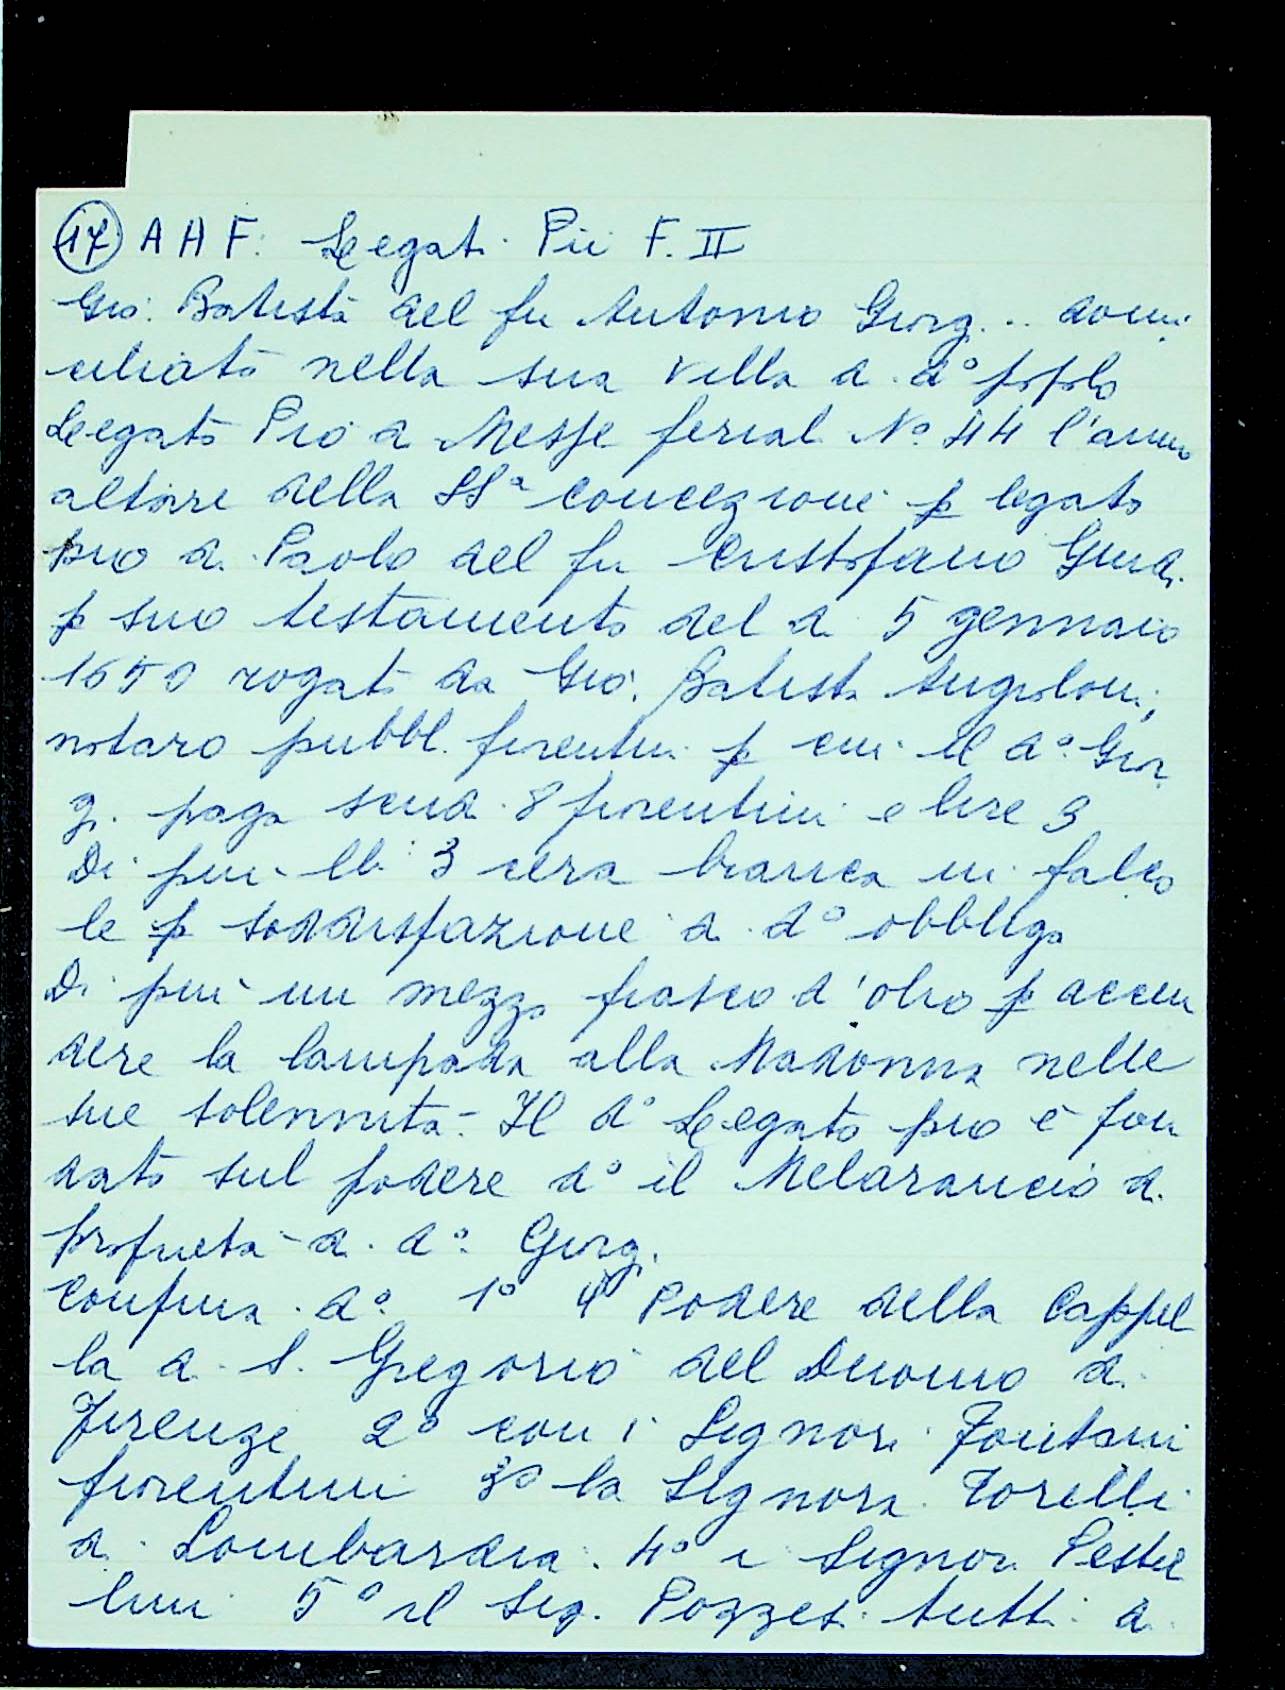 17 A H F: Legati Pii F. II
Gio: Batista del fu Antonio Giorgi.. domi
ciliato nella sua villa di do popolo
Legato Pio di Messe feriali No 44 l'anno
altare della SSa Concezione p legato
pio di Paolo del fu Cristofano Guidi
p suo testamento del di 5 gennaio
1650 rogato da Gio: Batista
notaro pubbl. fiorentin p cui il do: Gior
gi paga scudi 8 fiorentini e lire 3
Di più lb: 3 cera bianca in falco
le p soddisfazione di do obbligo
Di più un mezzo fiasco d'olio p accen
dere la lampada alla Madonna nelle
sue solennità - Il do Legato pio è fon
dato sul podere do il Melarancio di
proprietà di do: Giorgi
Confina do: 1o Podere della Cappel
la di S. Gregorio del Duomo di
Firenze 2o con i Signori Fontani
fiorentini 3o la Signora Torelli
di Lombardia. 4o i Signori Pestel
lini 5o il Sig. Pozzesi tutti di